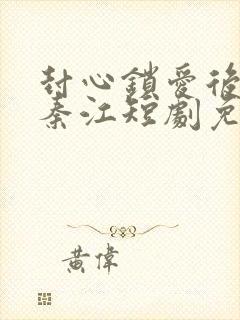 封心鎖愛後
秦江短劇免
黃偉